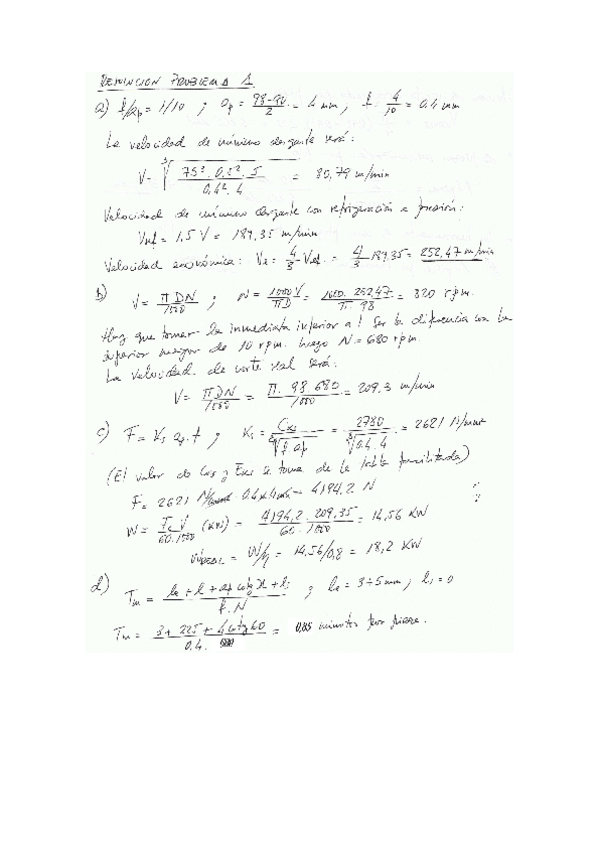 RESOLUCION PROBLEMA 1.
a) f/ap = 1/10 ; ap = 98-90/2 = 4 mm ; f = 4/10 = 0.4 mm
La velocidad de mínimo desgaste será:
V = = 80,79 m/min
Velocidad de mínimo desgaste con refrigeración a presión:
Vref = 1,5 V = 189,35 m/min
Velocidad económica: Ve = 4/3 Vref. = 4/3 189,35 = 252,47 m/min
b) V = π D N/1000 ; N = 1000 V/π D = 1000. 252,47/π. 98 = 820 r.p.m.
Hay que tomar la inmediata inferior al ser la diferencia con la
superior mayor de 10 rpm. Luego N = 680 rpm
La velocidad de corte real será:
V = π D N/1000 = π. 98. 680/1000 = 209.3 m/min
c) F = Ks ap. f ; Ks = = = 2621 N/mm²
(El valor de y se toma de la tabla facilitada)
F = 2621 0.4 x 4 = 4194,2 N
W = Fc V/60.1000 (kw) = 4194,2 . 209,35/60 . 1000 = 14,56 KW
WREAL = W/η = 14.56/0,8 = 18,2 KW
d) Tm = ; le = 3÷5 mm ; ls = 0
Tm = 3 + 225 + 4 cotg 60/0.4. = 0,85 minutos por pieza.